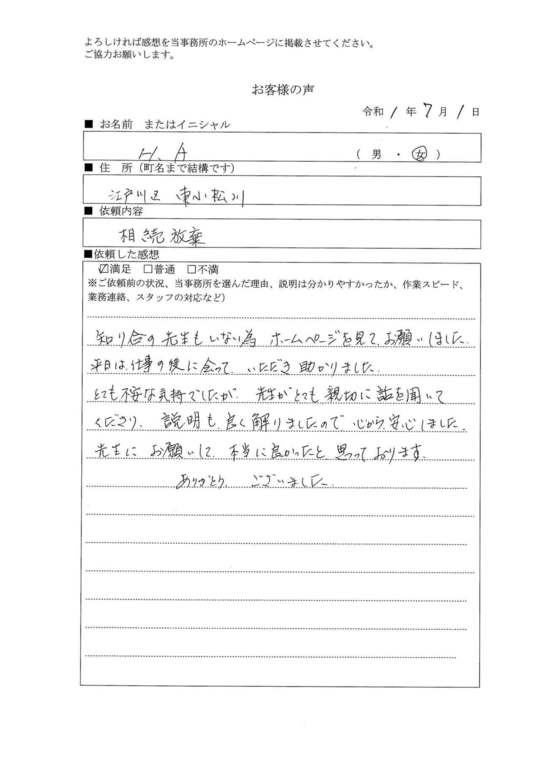 よろしければ感想を当事務所のホームページに掲載させてください。
ご協力お願いします。
お客様の声
令和 1 年 7 月 1 日
■ お名前 またはイニシャル
H.A （ 男 ・ 女 ）
■ 住 所（町名まで結構です）
江戸川区 東小松川
■ 依頼内容
相続放棄
■依頼した感想
☑満足 □普通 □不満
※ご依頼前の状況、当事務所を選んだ理由、説明は分かりやすかったか、作業スピード、
業務連絡、スタッフの対応など）
知り合の先生もいない為 ホームページを見て、お願いしました。
平日は仕事の後に会って、いただき助かりました。
とても不安な気持でしたが、先生がとても親切に話を聞いて
くださり、説明も良く解りましたので心から安心しました。
先生に お願いして、本当に良かったと思っております。
ありがとうございました。